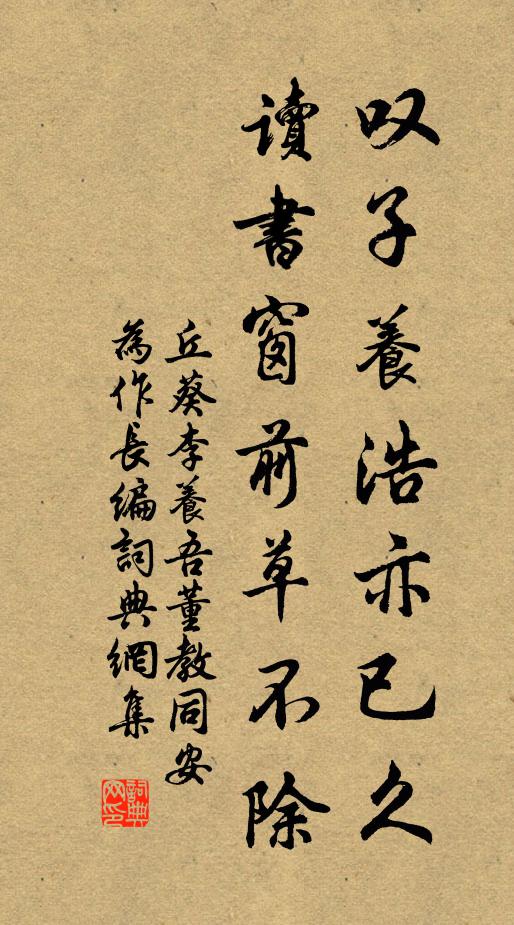 叹子養浩亦已久
讀書窗前草不除
丘葵李養吾董教同安
為作長編詞典網集
詞典网印